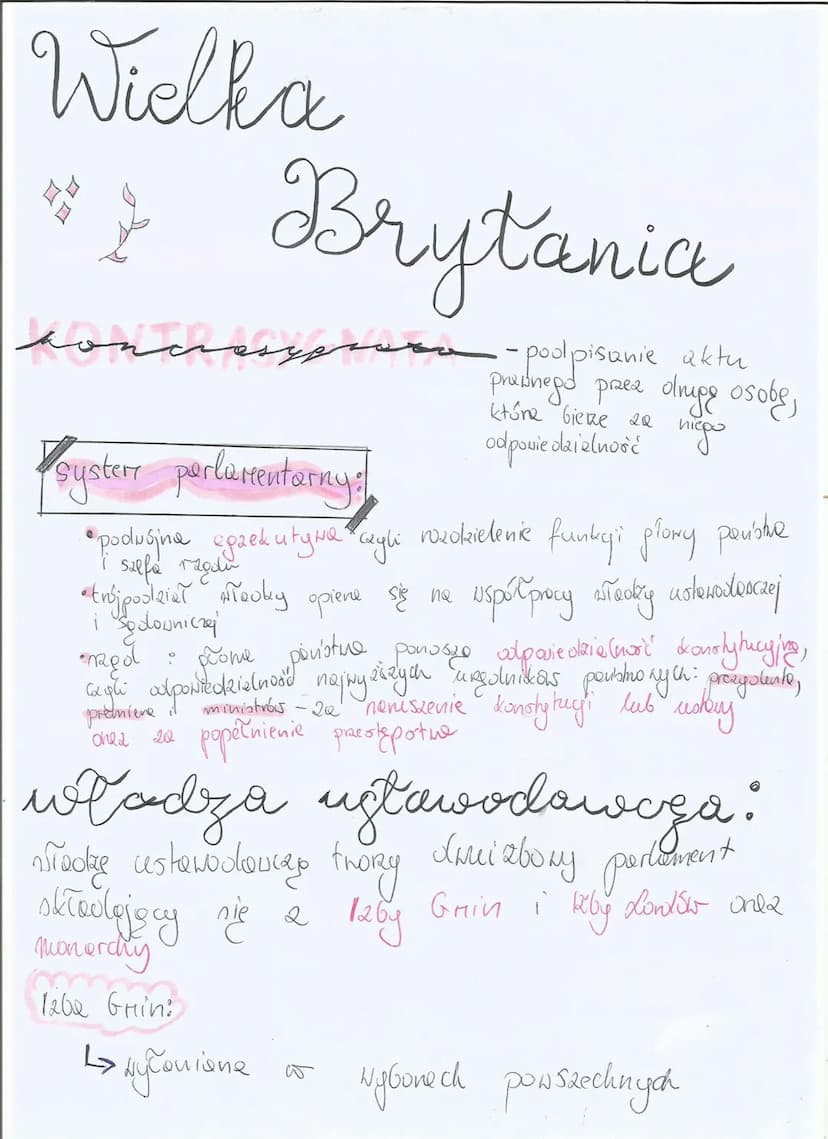 Wielka
Brytania
KONTRASYGNATA
kontrasygnata - podpisanie aktu
prawnego przez drugą osobę,
która bierze za niego
odpowiedzialność
system parlamentarny:
• podwójna egzekutywa czyli rozdzielenie funkcji głowy państwa
i szefa rządu
• trójpodział władzy opiera się na współpracy władzy ustawodawczej
i sądowniczej
• rząd i głowa państwa ponoszą odpowiedzialność konstytucyjną,
czyli odpowiedzialność najwyższych urzędników państwowych: prezydenta,
premiera i ministrów - za naruszenie konstytucji lub ustawy
oraz za popełnienie przestępstwa
władza ustawodawcza:
władzę ustawodawczą tworzy dwuizbowy parlament
składający się z Izby Gmin i Izby Lordów oraz
monarchy
Izba Gmin:
↳ wyłaniana w wyborach powszechnych